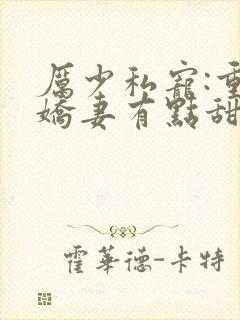 厲少私寵:重
嬌妻有點甜
霍華德-卡特